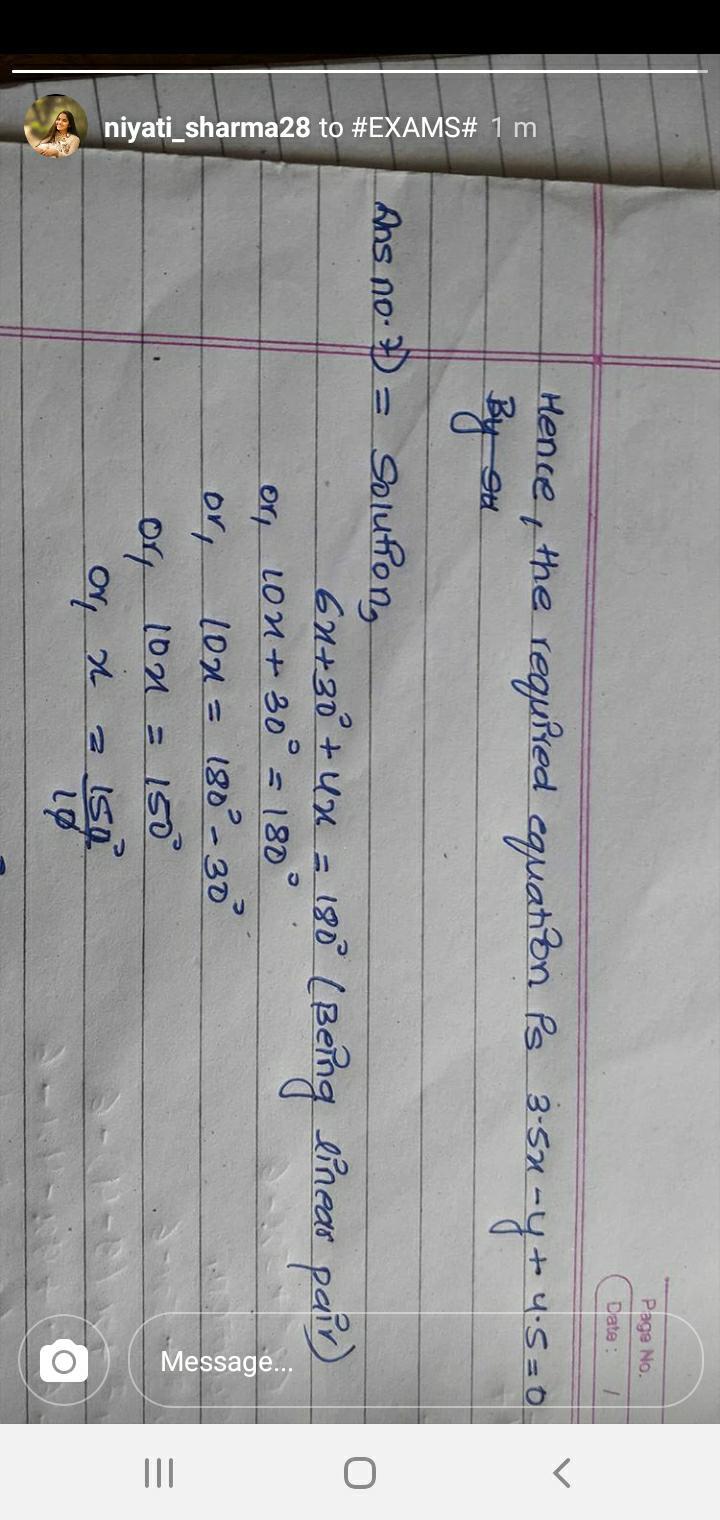 niyati_sharma28 to #EXAMS# 1 m
Page No.
Date: /
Hence, the required equation is 3.5x-y+4.5=0
By
Ans no.7) = Solution,
6x+30°+4x = 180° (Being linear pair)
or, 10x+30° = 180°
or, 10x = 180°-30°
or, 10x = 150°
or, x = 150°/10
Message...